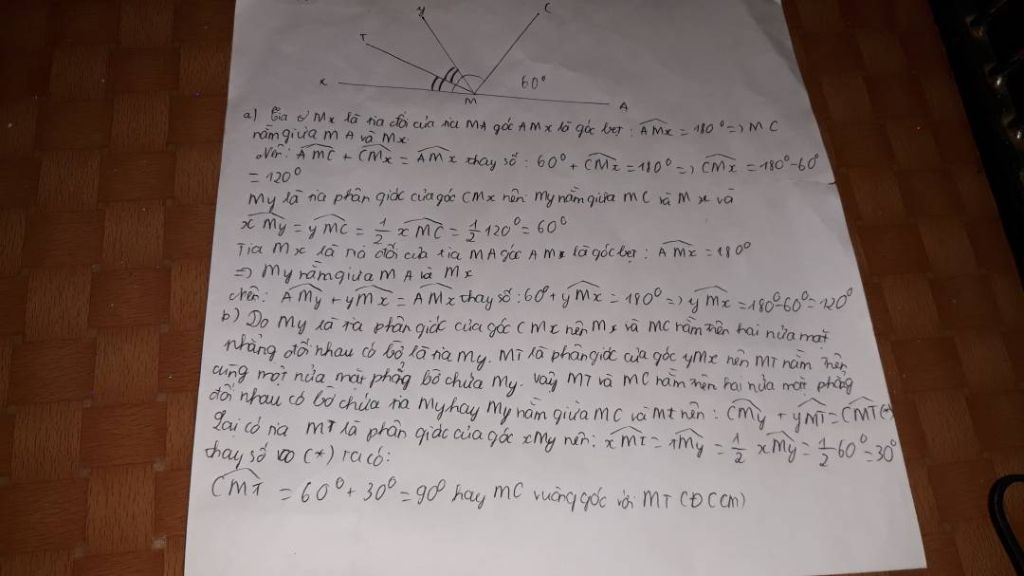 y
C
T
x
60°
M
A
a) Mx là tia đối của tia MA góc AMx là góc bẹt : AMx = 180° => MC
nằm giữa MA và Mx
Nên: AMC + CMx = AMx thay số : 60° + CMx = 180° => CMx = 180° - 60°
= 120°
My là tia phân giác của góc CMx nên My nằm giữa MC và Mx và
xMy = yMC = 1/2 xMC = 1/2 120° = 60°
Tia Mx là tia đối của tia MA góc AMx là góc bẹt : AMx = 180°
=> My nằm giữa MA và Mx
Nên: AMy + yMx = AMx thay số : 60° + yMx = 180° => yMx = 180° - 60° = 120°
b) Do My là tia phân giác của góc CMx nên Mx và MC nằm trên hai nửa mặt
phẳng đối nhau có bờ là tia My. MT là phân giác của góc yMx nên MT nằm trên
cùng một nửa mặt phẳng bờ chứa My. vậy MT và MC nằm trên hai nửa mặt phẳng
đối nhau có bờ chứa tia My hay My nằm giữa MC và Mt nên : CMy + yMT = CMT (*)
Lại có tia MT là phân giác của góc xMy nên: xMT = TMy = 1/2 xMy = 1/2 60° = 30°
thay số vào (*) ta có:
CMT = 60° + 30° = 90° hay MC vuông góc với MT (ĐCCM)